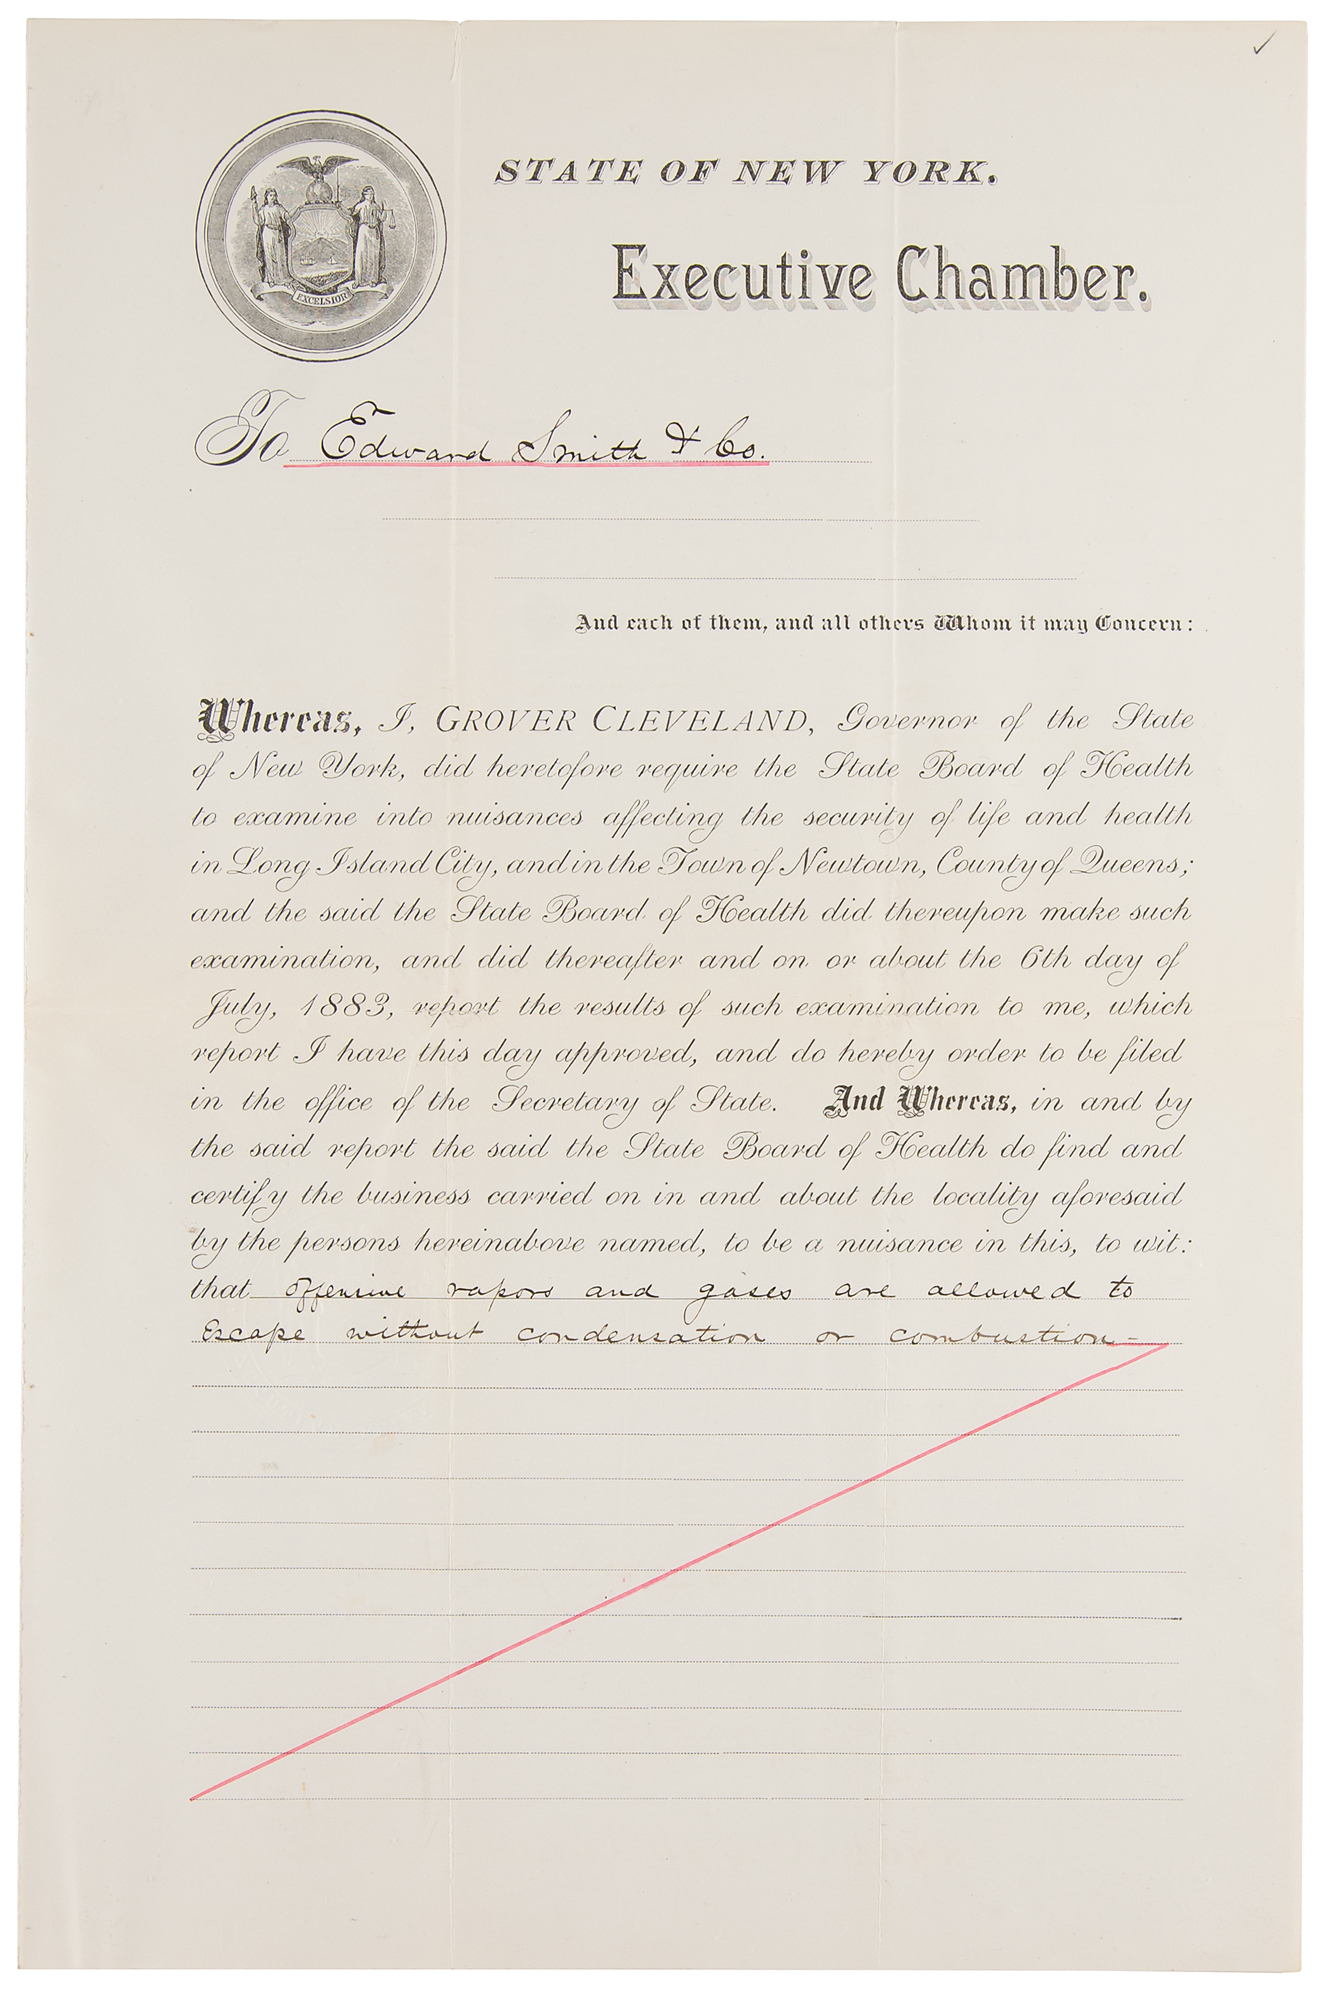 STATE OF NEW YORK.
Executive Chamber.
EXCELSIOR
To Edward Smith & Co.
And each of them, and all others Whom it may Concern:
Whereas, I, GROVER CLEVELAND, Governor of the State
of New York, did heretofore require the State Board of Health
to examine into nuisances affecting the security of life and health
in Long Island City, and in the Town of Newtown, County of Queens;
and the said the State Board of Health did thereupon make such
examination, and did thereafter and on or about the 6th day of
July, 1883, report the results of such examination to me, which
report I have this day approved, and do hereby order to be filed
in the office of the Secretary of State. And Whereas, in and by
the said report the said the State Board of Health do find and
certify the business carried on in and about the locality aforesaid
by the persons hereinabove named, to be a nuisance in this, to wit:
that offensive vapors and gases are allowed to
Escape without condensation or combustion-